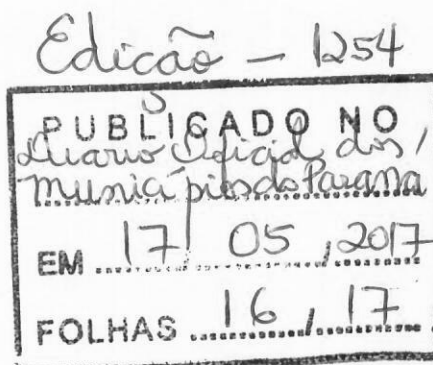 Edição - 1254
PUBLICADO NO
Diário Oficial dos
Municípios do Paraná
EM 17 / 05 / 2017
FOLHAS 16 / 17